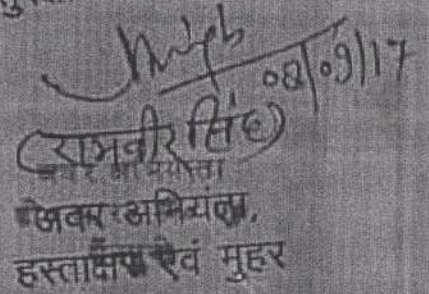 08/09/17
(रामवीर सिंह)
अवर अभियंता,
हस्ताक्षर एवं मुहर